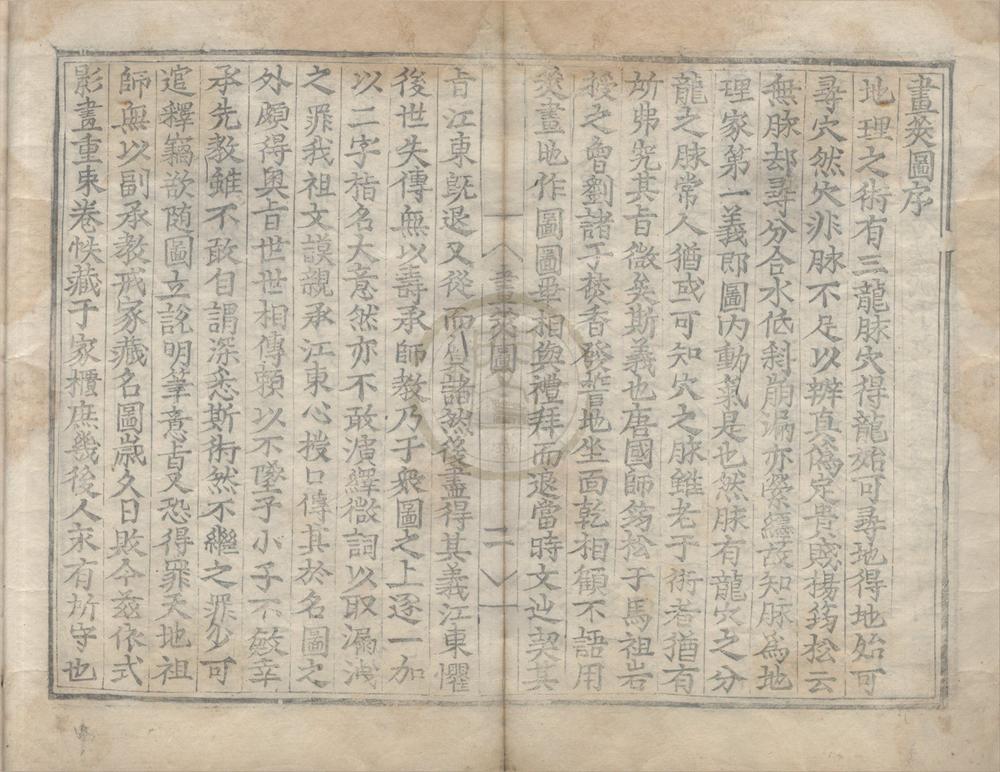 畫莢圖序
地理之術有三龍脉穴得龍始可尋地得地始可
尋穴然穴非脉不足以辨真僞定貴賤楊筠松云
無脉却尋分合水低斜崩漏亦縈纏故知脉爲地
理家第一義即圖内動氣是也然脉有龍穴之分
龍之脉常人猶或可知穴之脉雖老于術者猶有
所弗究其旨微矣斯義也唐國師筠松于馬祖岩
授之曾劉諸子焚香發誓地坐面乾相顧不語用
莢畫地作圖圖畢相與禮拜而退當時文辿契其
旨江東旣退又從而質諸然後盡得其義江東懼
後世失傳無以壽承師教乃于衆圖之上逐一加
以二字指名大意然亦不敢演繹微詞以取漏洩
之罪我祖文謨親承江東心授口傳其於名圖之
外頗得奥旨世世相傳賴以不墜予小子不敏幸
承先教雖不敢自謂深悉斯術然不繼之罪少可
逭釋竊欲随圖立説明筆意旨又恐得罪天地祖
師無以副承教戒家藏名圖嵗久日敗今兹依式
影畫重束卷帙藏于家櫃庶幾後人永有所守也
畫莢圖
二